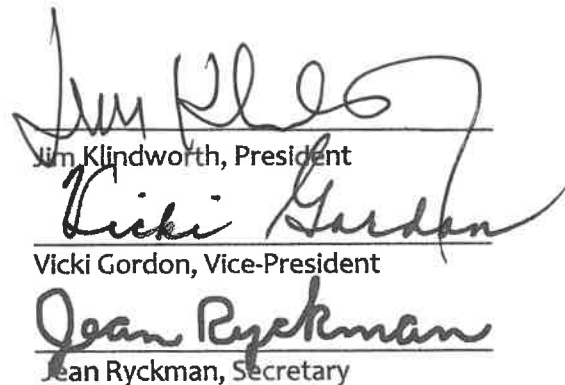 Jim Kl
Jim Klindworth, President
Vicki Gordon
Vicki Gordon, Vice-President
Jean Ryckman
Jean Ryckman, Secretary